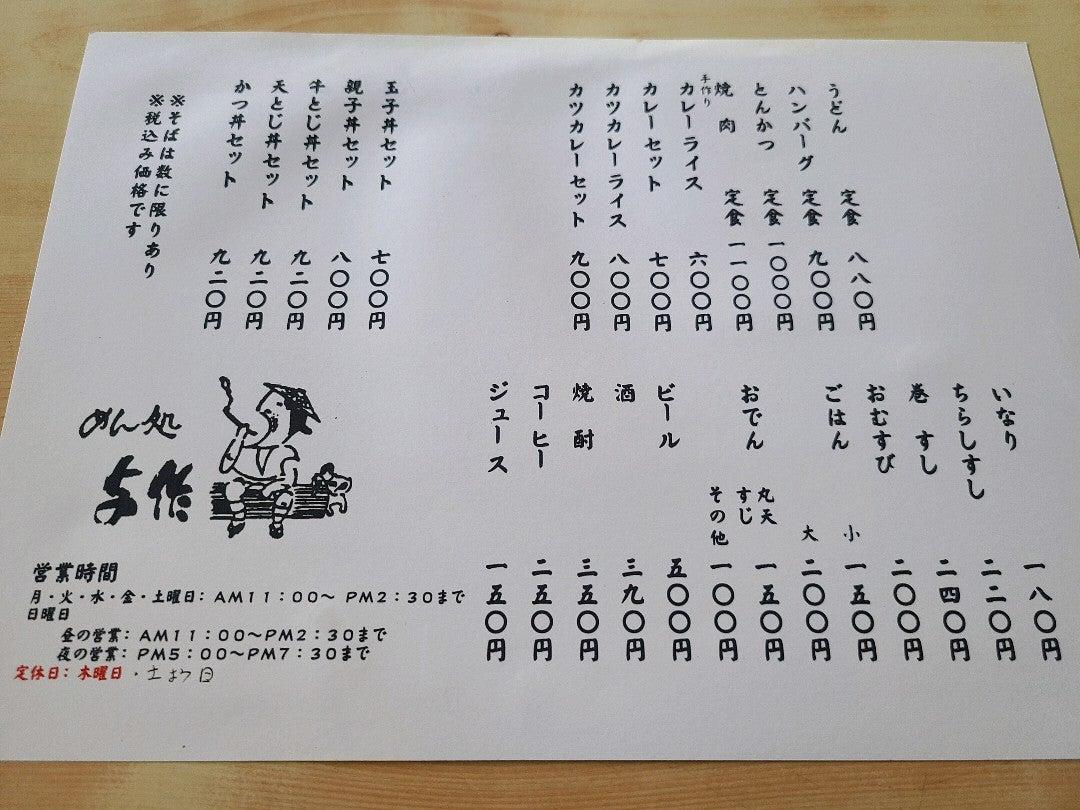 うどん 定食 八八〇円
ハンバーグ 定食 九〇〇円
とんかつ 定食 一〇〇〇円
焼肉 定食 一一〇〇円
手作り
カレーライス 六〇〇円
カレーセット 七〇〇円
カツカレーライス 八〇〇円
カツカレーセット 九〇〇円
玉子丼セット 七〇〇円
親子丼セット 八〇〇円
牛とじ丼セット 九二〇円
天とじ丼セット 九二〇円
かつ丼セット 九二〇円
※そばは数に限りあり
※税込み価格です
いなり 一八〇円
ちらしすし 二二〇円
巻すし 二四〇円
おむすび 二〇〇円
ごはん 小 一五〇円
大 二〇〇円
おでん 丸天
すじ 一五〇円
その他 一〇〇円
ビール 五〇〇円
酒 三九〇円
焼酎 三五〇円
コーヒー 二五〇円
ジュース 一五〇円
めん処
与作
営業時間
月・火・水・金・土曜日：AM11：00～PM2：30まで
日曜日
昼の営業：AM11：00～PM2：30まで
夜の営業：PM5：00～PM7：30まで
定休日：木曜日・土よう日